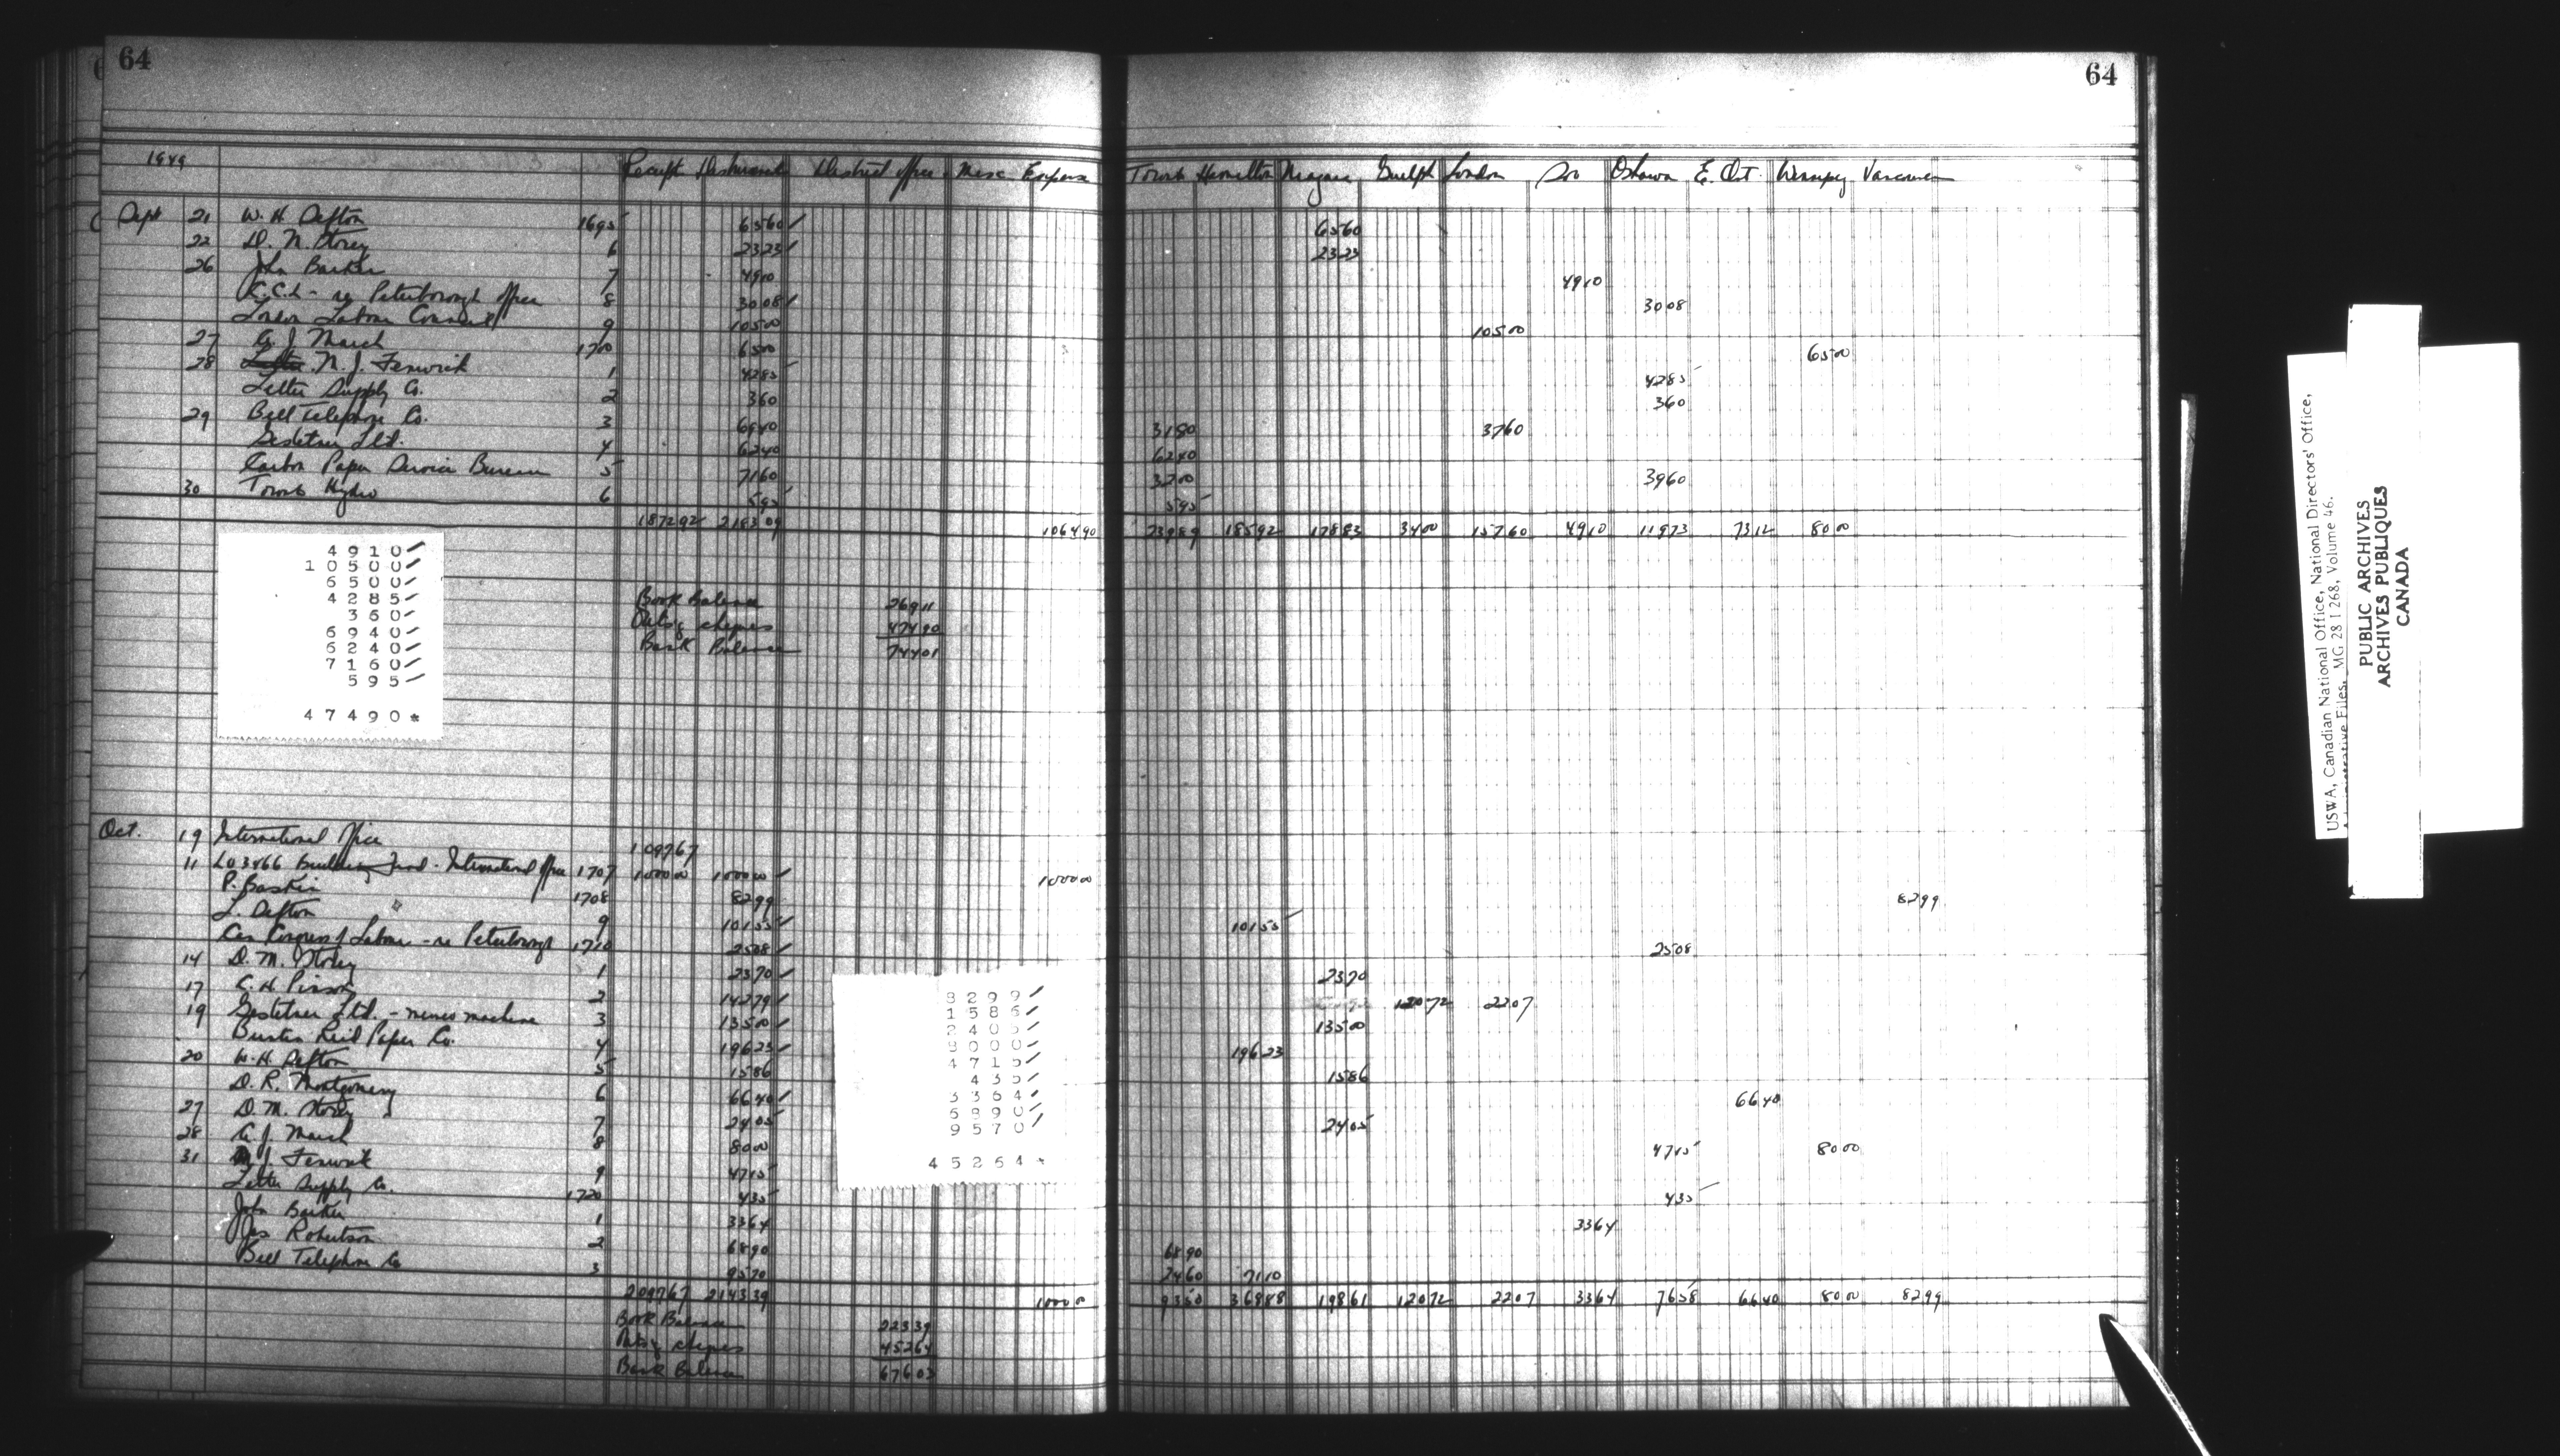 64
64
1949 Receipts Disbursements District office Misc Expense Toronto Hamilton Niagara Guelph London Soo Oshawa E. Ont. Winnipeg Vancouver
Sept 21 W. H. Sefton 1695 6560 6560
22 D. M. Storey 6 2323 2323
26 John Barker 7 4910 4910
C.C.L - re Peterborough office 8 3008 3008
London Labour Council 9 10500 10500
27 G. J. March 1700 6500 6500
28 M. J. Fenwick 1 4285 4285
Letter Supply Co. 2 360 360
29 Bell Telephone Co. 3 6940 3180 3760
Gestetner Ltd. 4 6240 6240
Carbon Paper Service Bureau 5 7160 3200 3960
30 Toronto Hydro 6 595 595
187292 218309 106490 23989 18592 17883 3400 15760 4910 11973 7312 8000
4910
10500
6500
4285
360
6940
6240
7160
595
47490*
Book Balance 26911
Outs'g cheques 47490
Bank Balance 74401
Oct. 19 International Office 109767
11 LO 3466 Building Fund - International Office 1707 100000 100000 100000
P. Baskin 1708 8299 8299
L. Sefton " 9 10155 10155
Can Congress of Labour - re Peterborough 1710 2508 2508
14 D. M. Storey 1 2370 2370
17 C. H. Pinson 2 14279 12072 2207
19 Gestetner Ltd. - mimeo machine 3 13500 13500
Buntin Reid Paper Co. 4 19623 19623
20 W. H. Sefton 5 1586 1586
D. R. Montgomery 6 6640 6640
27 D. M. Storey 7 2405 2405
28 G. J. March 8 8000 8000
31 M J Fenwick 9 4715 4715
Letter Supply Co. 1720 435 435
John Barker 1 3364 3364
Jas Robertson 2 6890 6890
Bell Telephone Co 3 9570 2460 7110
209767 214339 100000 9350 36888 19861 12072 2207 3364 7658 6640 8000 8299
8299
1586
2405
8000
4715
435
3364
6890
9570
45264*
Book Balance 22339
Outs'g cheques 45264
Bank Balance 67603
USWA, Canadian National Office, National Directors' Office,
Administrative Files, MG 28 I 268, Volume 46.
PUBLIC ARCHIVES
ARCHIVES PUBLIQUES
CANADA